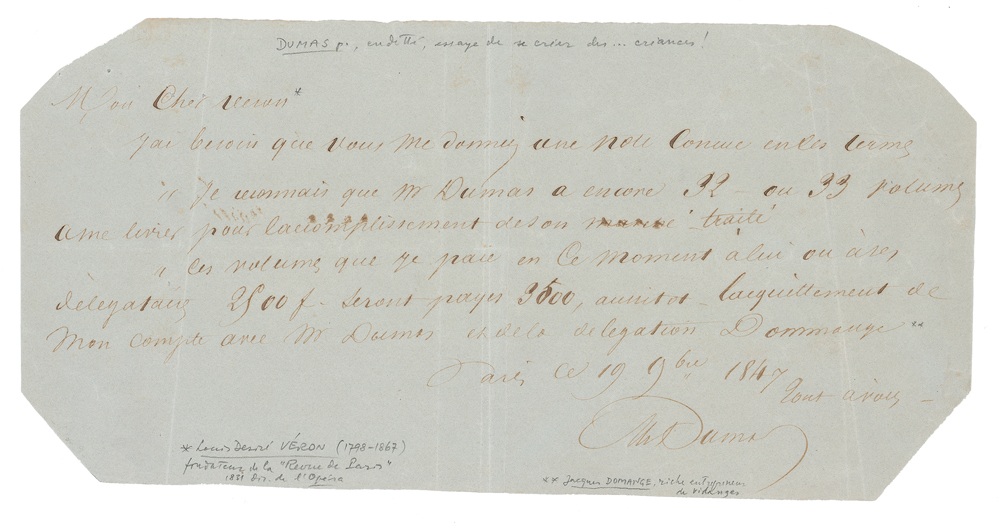 DUMAS p., endetté, essaye de se créer des... créances!
Mon Cher Veron *
J'ai besoin que vous me donniez une note Concue en ces termes
" Je reconnais que Mr Dumas a encore 32 - ou 33 volumes
a me livrer pour l'accomplissement de son traité
" Ces volumes que je paie en ce moment a lui ou à ses
délégataires 2500 f. seront payés 3500, aussitot l'acquittement de
Mon compte avec Mr Dumas et de la delegation Dommange **
Paris Ce 19 9bre 1847
Tout à vous -
Alex Dumas
* Louis Desiré VÉRON (1798-1867)
fondateur de la "Revue de Paris"
1831 Dir. de l'Opéra
** Jacques DOMANGE, riche entrepreneur
de vidanges